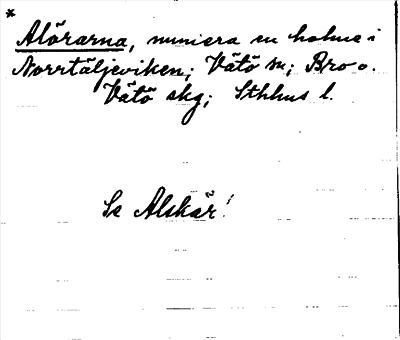 *
Alörarna, numera en holme i
Norrtäljeviken; Vätö sn; Bro o.
Vätö skg; Sthhus l.
Se Alskär!